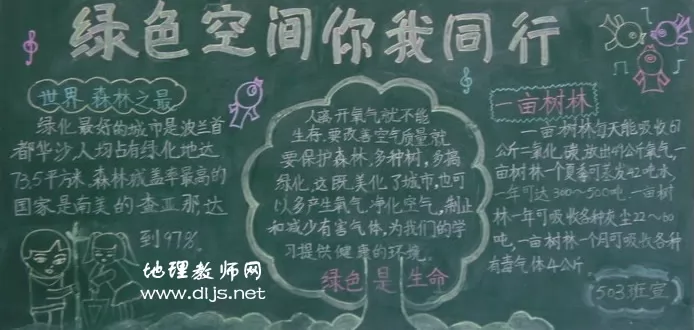 绿色空间你我同行
世界森林之最
绿化最好的城市是波兰首
都华沙人均占有绿化地达
73.5平方米.森林覆盖率最高的
国家是南美的查亚那,达
到97%.
人离开氧气就不能
生存.要改善空气质量就
要保护森林,多种树,多搞
绿化.这既美化了城市,也可
以多产生氧气.净化空气,制止
和减少有害气体,为我们的学
习提供健康的环境.
绿色是生命
一亩树林
一亩树林每天能吸收67
公斤二氧化碳,放出49公斤氧气,一
亩树林一个夏季可蒸发42吨水,
一年可达300~500吨.一亩树
林一年可吸收各种灰尘22~60
吨,一亩树林一个月可吸收各种
有毒气体4公斤.
503班宣
地理教师网
www.dljs.net